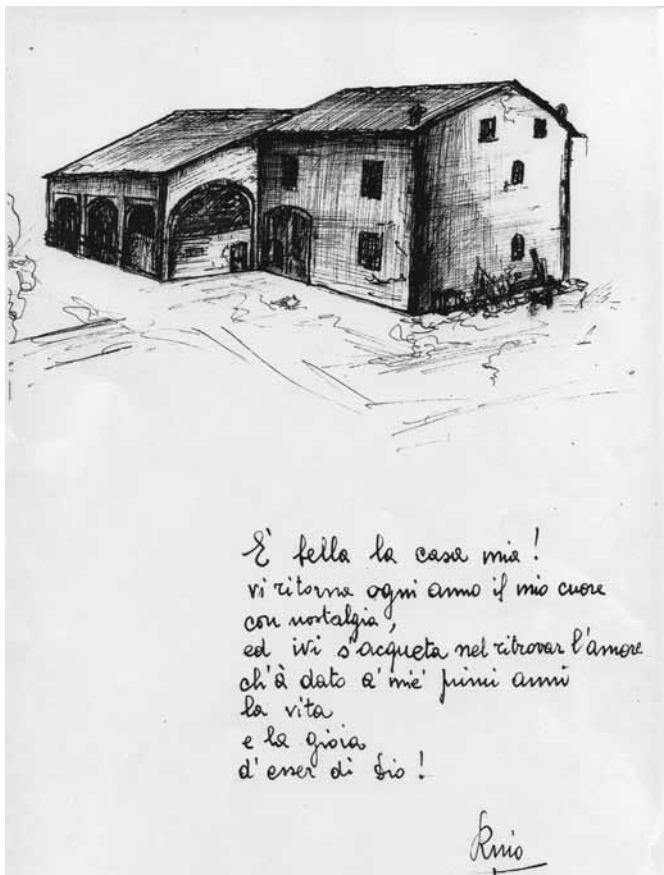 È bella la casa mia!
vi ritorna ogni anno il mio cuore
con nostalgia,
ed ivi s'acqueta nel ritrovar l'amore
ch'à dato a' mie' primi anni
la vita
e la gioia
d'esser di Dio!